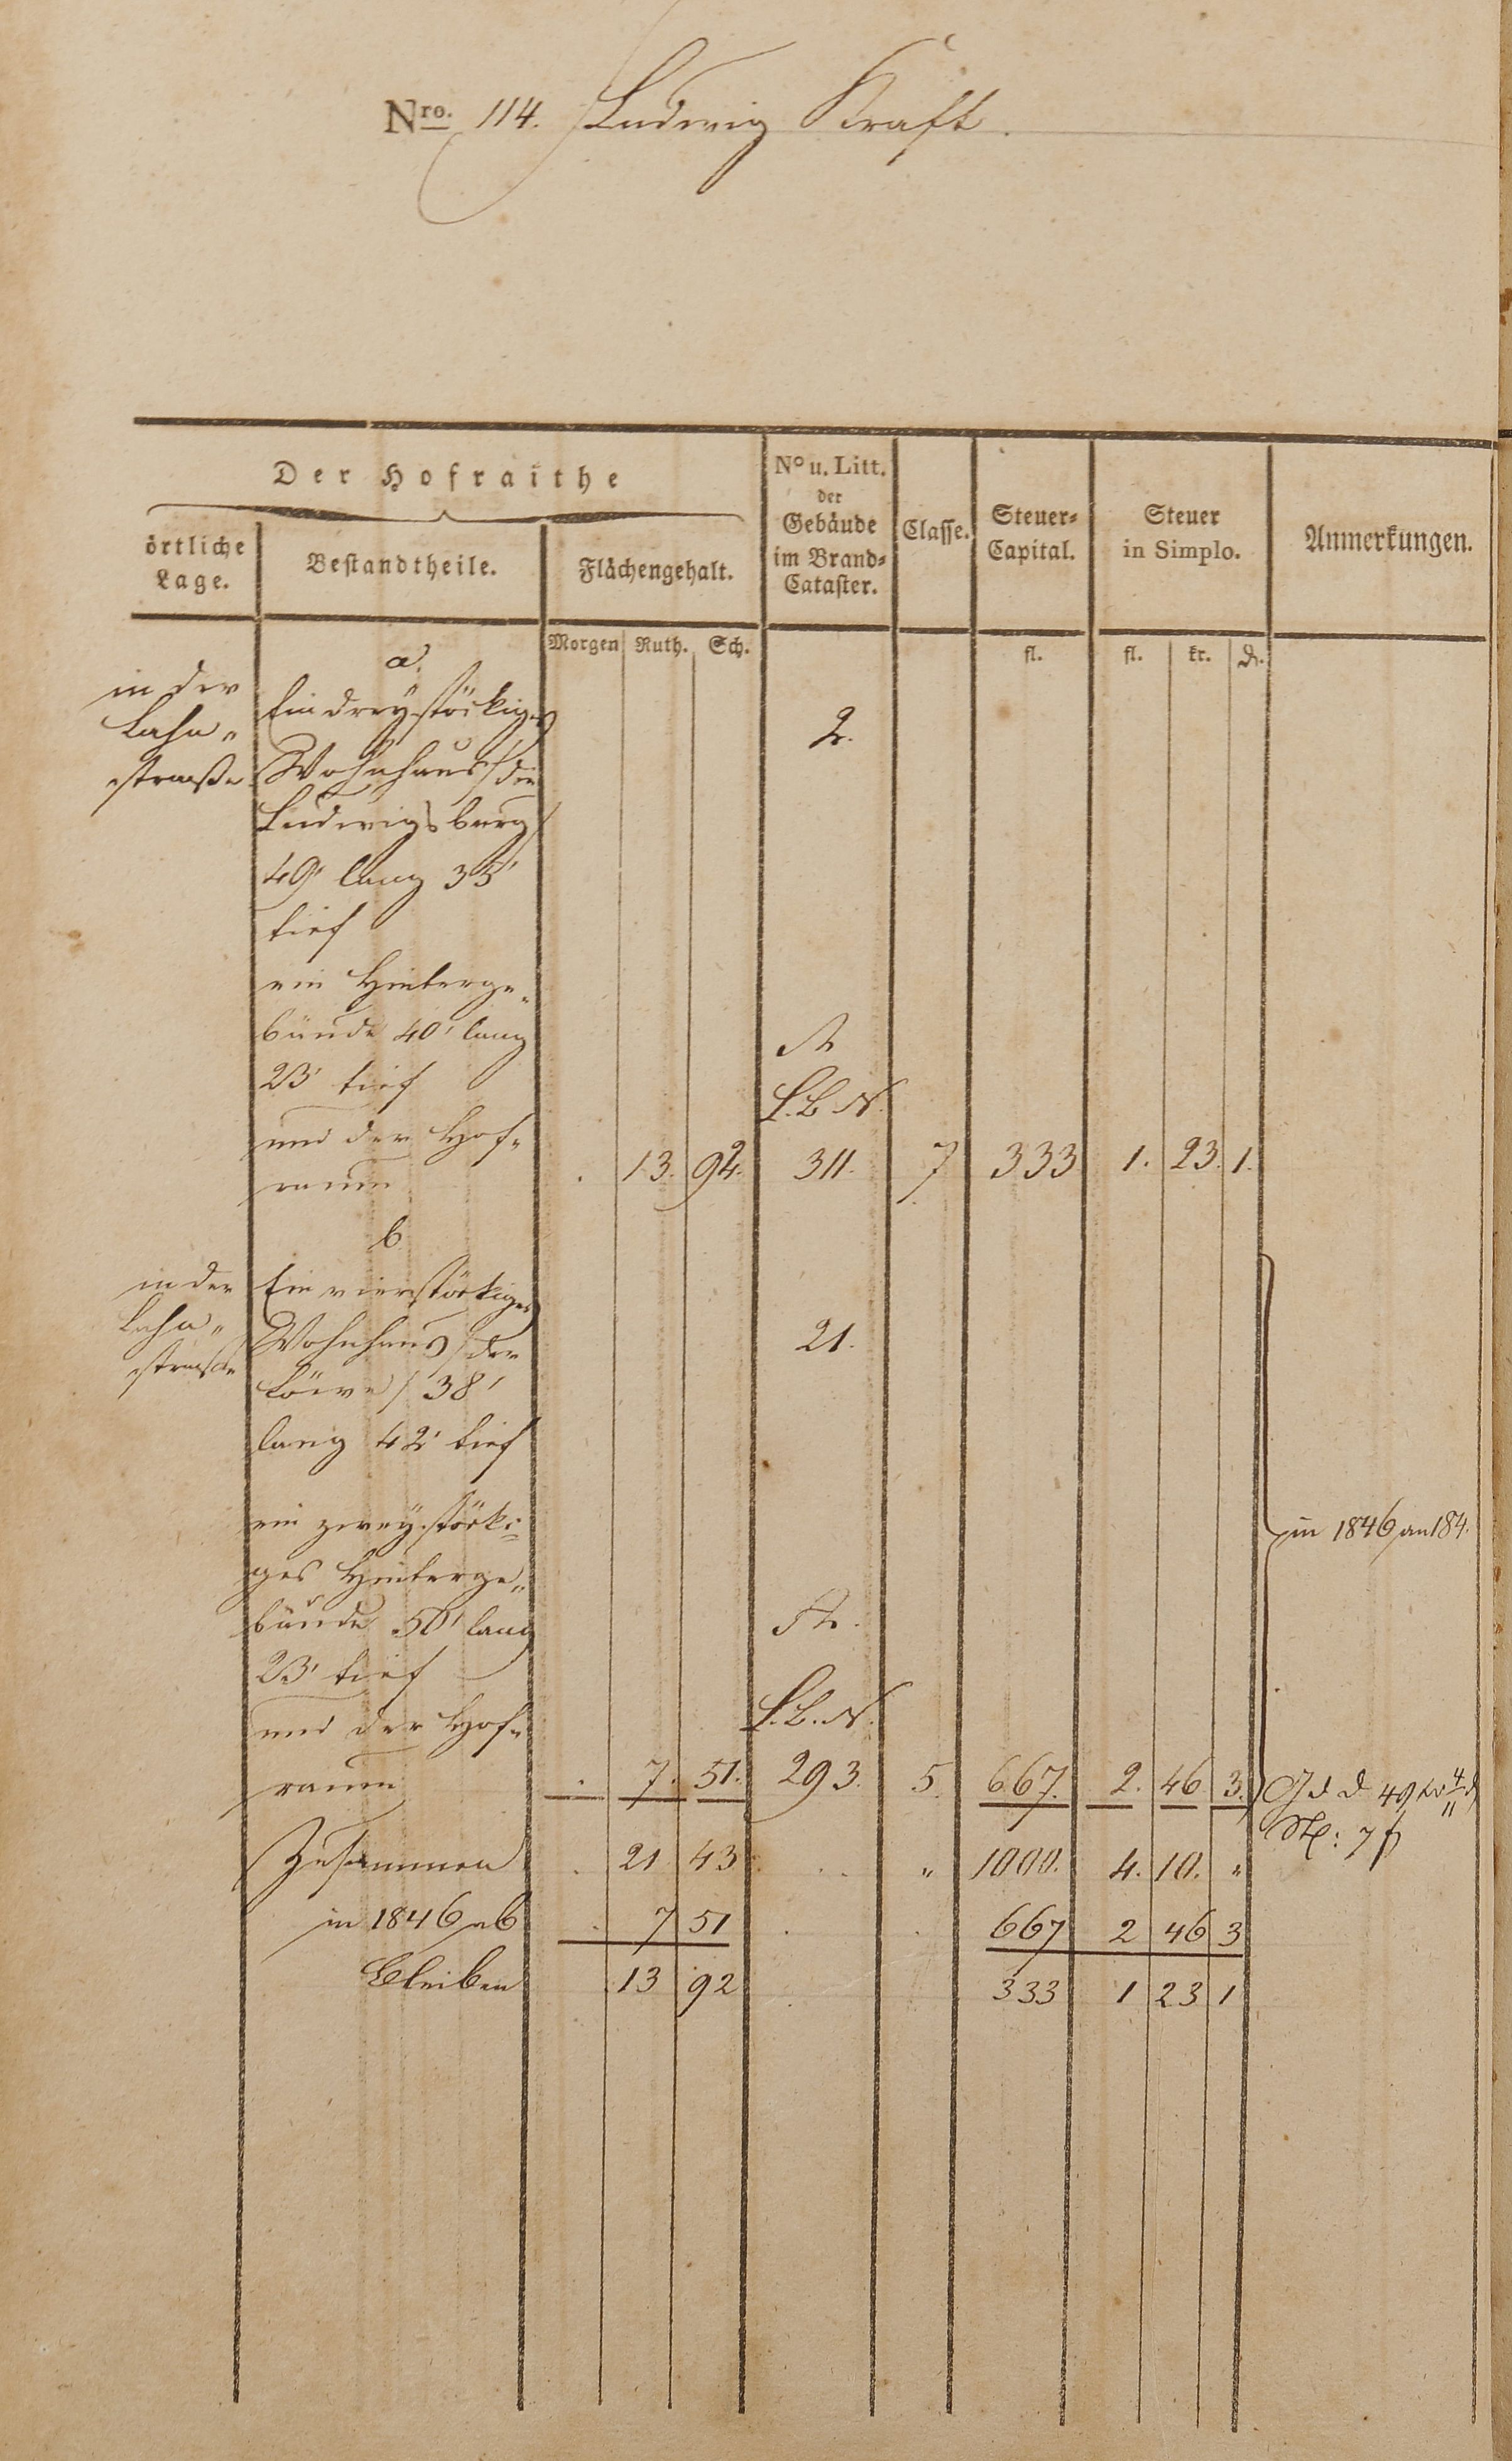 Nro. 114. Ludwig Kraft.
Der Hofraithe
örtliche Lage.
Bestandtheile.
Flächengehalt.
No u. Litt. der Gebäude im Brand-Cataster.
Classe.
Steuer-Capital.
Steuer in Simplo.
Anmerkungen.
Morgen Ruth. Sch. fl. fl. kr. d.
a.
in der Ein dreystöckiges
Lahn- 2.
straße Wohnhaus / die
Ludwigsburg /
49' lang 35'
tief
ein Hinterge-
bäude 40' lang
23' tief
L.B.N.
und der Hof-
raum . 13. 92. 311. 7 333 1. 23. 1.
b
in der Ein vierstöckiges
Lahn- Wohnhaus / der 21.
straße Löwe / 38'
lang 42' tief
ein zweystöcki-
ges Hinterge-
bäude 50' lang
23' tief
in 1846 an 184.
L.B.N.
und der Hof-
raum . 7. 51. 293. 5. 667. 2. 46 3.
Zusammen . 21 43 . . " 1000. 4. 10. "
in 1846 ab . 7 51 . . 667 2 46 3
Bleiben 13 92 333 1 23 1